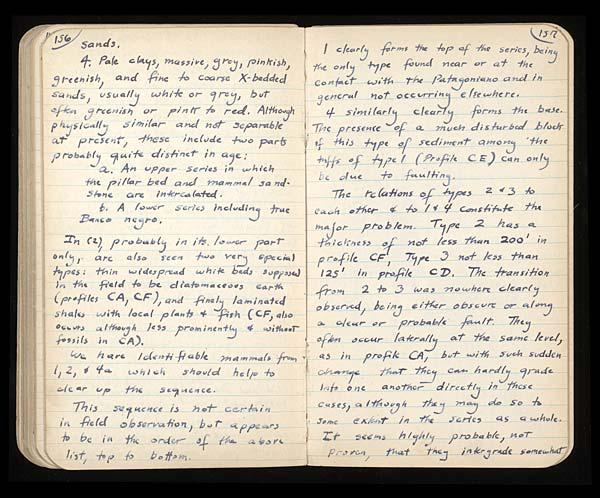 156
sands.
4. Pale clays, massive, grey, pinkish,
greenish, and fine to coarse X-bedded
sands, usually white or grey, but
often greenish or pink to red. Although
physically similar and not separable
at present, these include two parts
probably quite distinct in age:
a. An upper series in which
the pillar bed and mammal sand-
stone are intercalated.
b. A lower series including true
Banco negro.
In (2), probably in its lower part
only, are also seen two very special
types: thin widespread white beds supposed
in the field to be diatomaceous earth
(profiles CA, CF), and finely laminated
shales with local plants & fish (CF, also
occurs although less prominently & without
fossils in CA).
We have identifiable mammals from
1, 2, & 4a which should help to
clear up the sequence.
This sequence is not certain
in field observation, but appears
to be in the order of the above
list, top to bottom.
157
1 clearly forms the top of the series, being
the only type found near or at the
contact with the Patagoniano and in
general not occurring elsewhere.
4 similarly clearly forms the base.
The presence of a much disturbed block
of this type of sediment among the
tuffs of type 1 (Profile CE) can only
be due to faulting.
The relations of types 2 & 3 to
each other & to 1 & 4 constitute the
major problem. Type 2 has a
thickness of not less than 200' in
profile CF, Type 3 not less than
125' in profile CD. The transition
from 2 to 3 was nowhere clearly
observed, being either obscure or along
a clear or probable fault. They
often occur laterally at the same level,
as in profile CA, but with such sudden
change that they can hardly grade
into one another directly in these
cases, although they may do so to
some extent in the series as a whole.
It seems highly probable, not
proven, that they intergrade somewhat